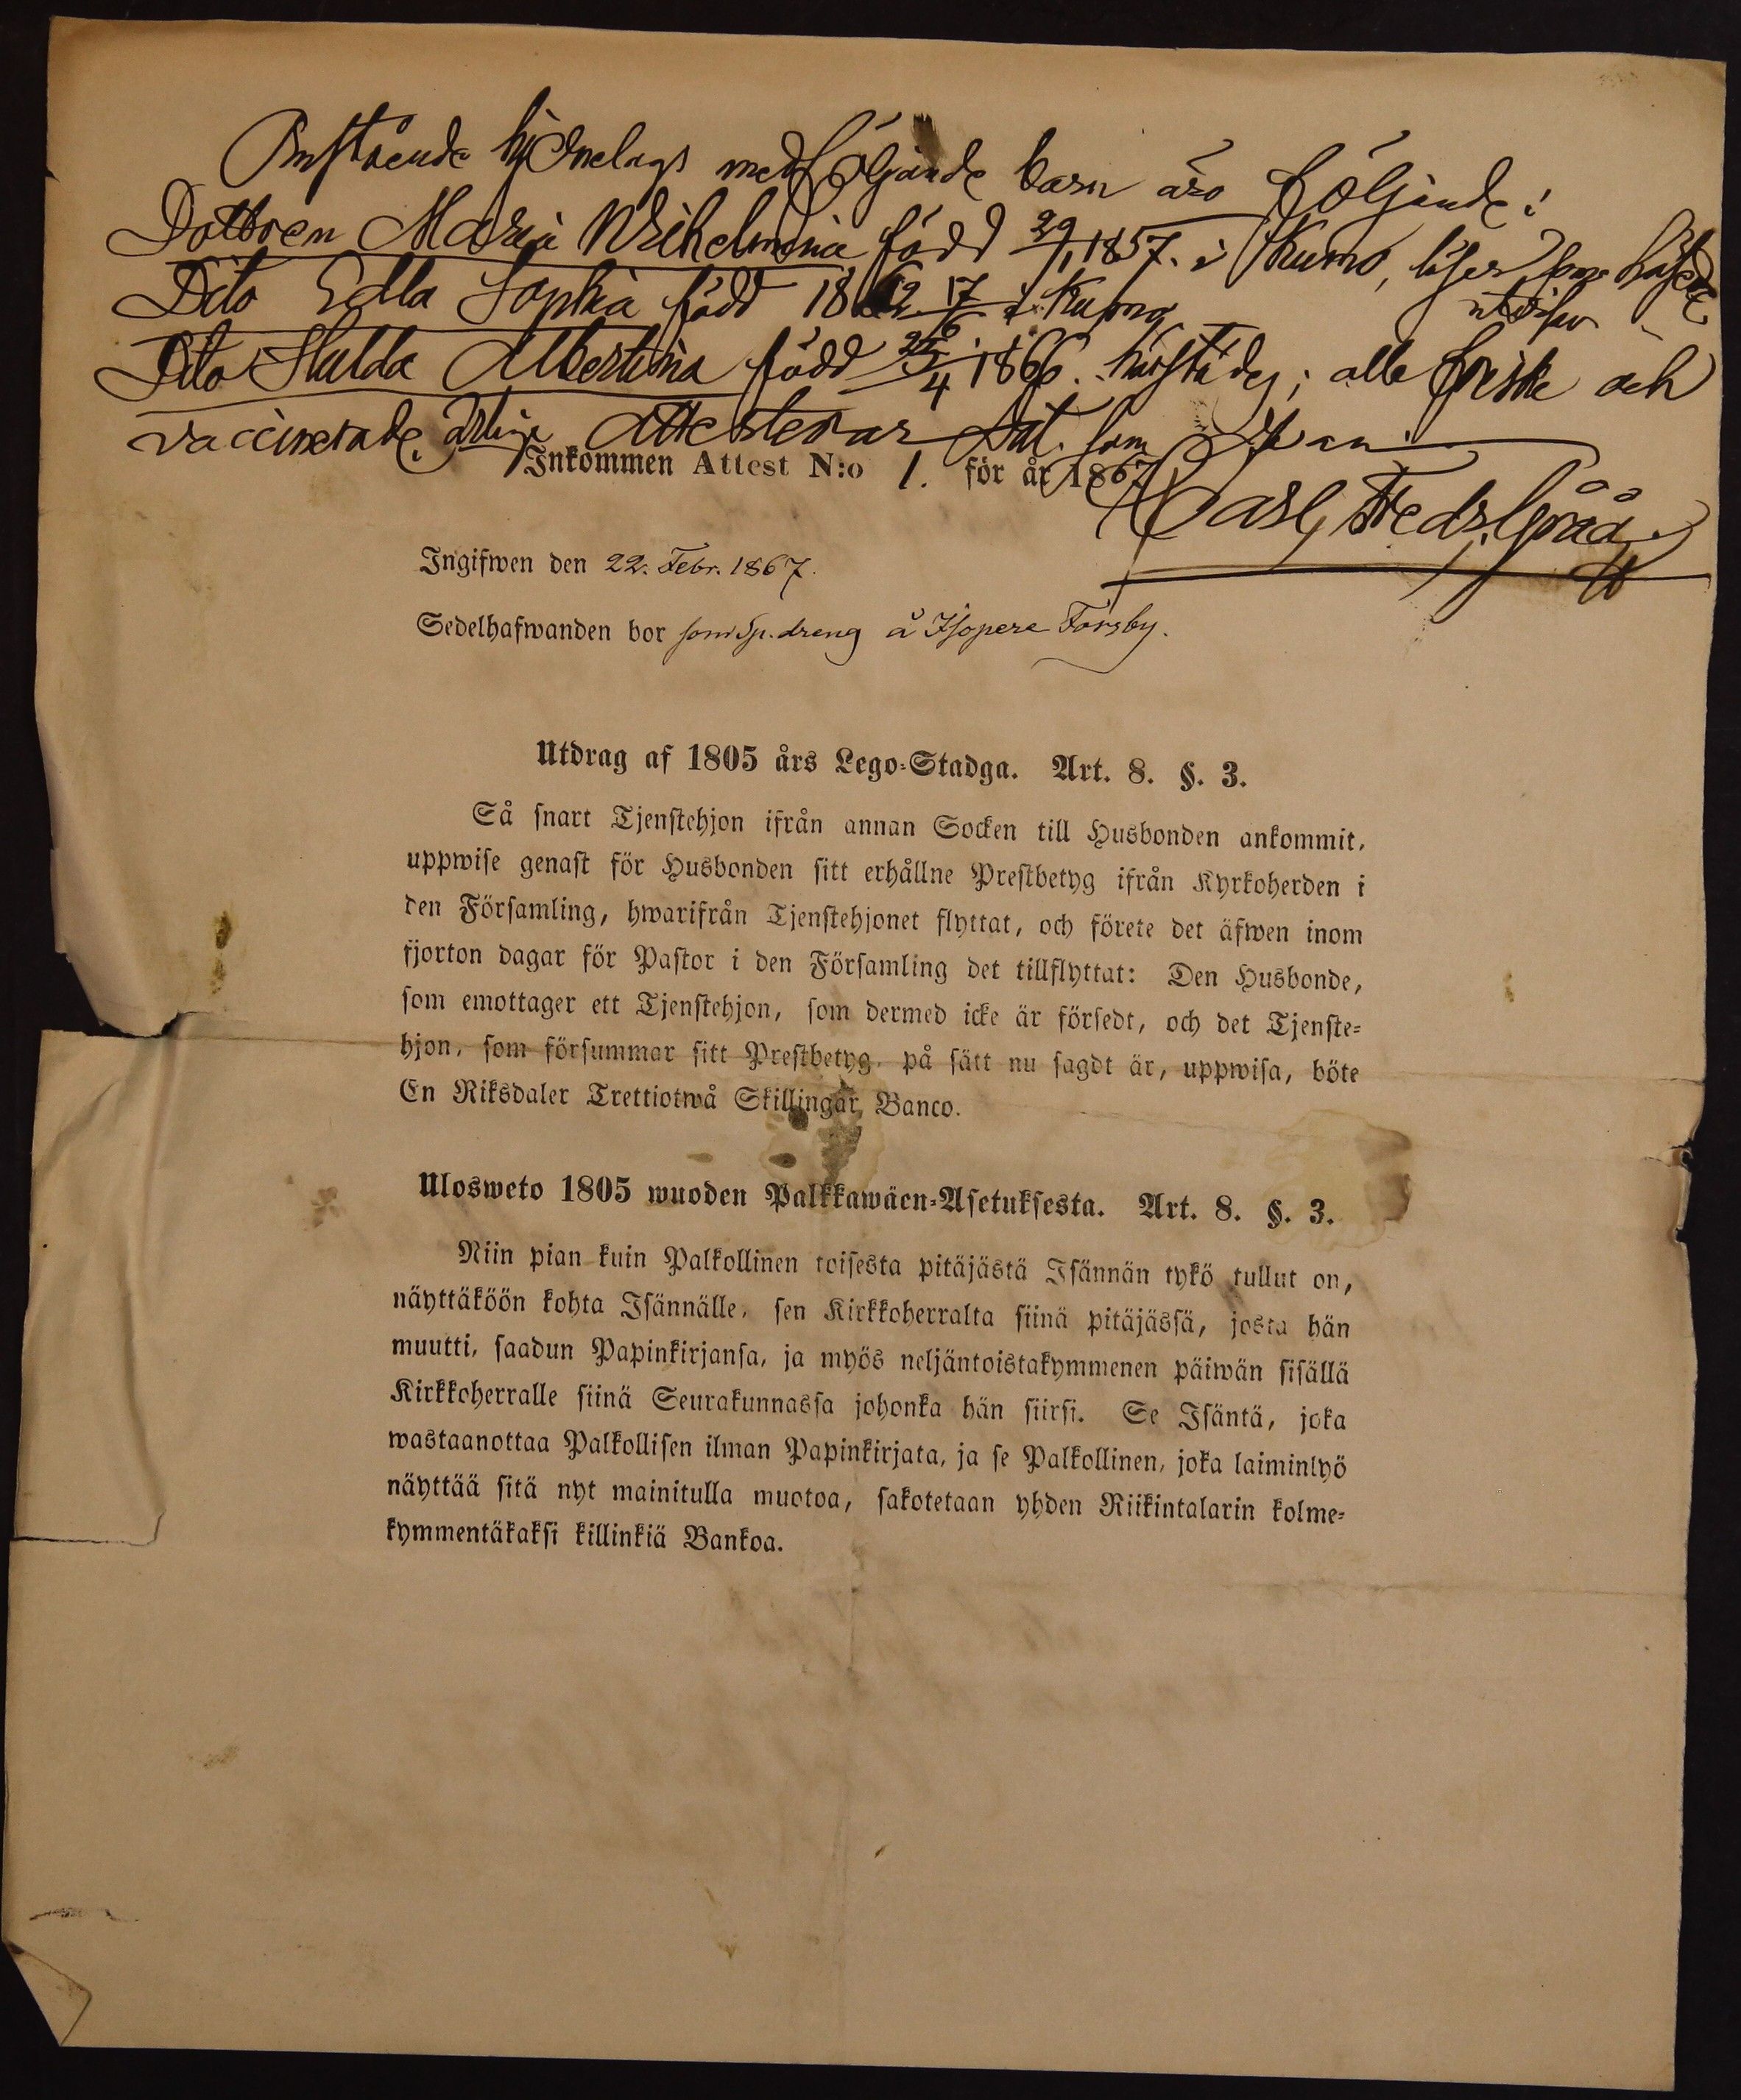 Omstående hjonelags medföljande barn äro följande:
Dottren Maria Wilhelmina född 29/1 1857. i Kumo, läser
Dito Edla Sophia född 1862 17/6 i Kumo
Dito Hulda Albertina född 25/4 1866. härstädes; alle friske och
vaccinerade. attesterar Dat. som
Inkommen Attest N:o 1. för år 1867
Carl Fredr.
Ingifwen den 22. Febr. 1867.
Sedelhafwanden bor som Sp. dreng å Isopere Forsby.
Utdrag af 1805 års Lego-Stadga. Art. 8. §. 3.
Så snart Tjenstehjon ifrån annan Socken till Husbonden ankommit,
uppwise genast för Husbonden sitt erhållne Prestbetyg ifrån Kyrkoherden i
den Församling, hwarifrån Tjenstehjonet flyttat, och förete det äfwen inom
fjorton dagar för Pastor i den Församling det tillflyttat: Den Husbonde,
som emottager ett Tjenstehjon, som dermed icke är försedt, och det Tjenste-
hjon, som försummar sitt Prestbetyg, på sätt nu sagdt är, uppwisa, böte
En Riksdaler Trettiotwå Skillingar Banco.
Ulosweto 1805 wuoden Palkkawäen-Asetuksesta. Art. 8. §. 3.
Niin pian kuin Palkollinen toisesta pitäjästä Isännän tykö tullut on,
näyttäköön kohta Isännälle, sen Kirkkoherralta siinä pitäjässä, josta hän
muutti, saadun Papinkirjansa, ja myös neljäntoistakymmenen päiwän sisällä
Kirkkoherralle siinä Seurakunnassa johonka hän siirsi. Se Isäntä, joka
wastaanottaa Palkollisen ilman Papinkirjata, ja se Palkollinen, joka laiminlyö
näyttää sitä nyt mainitulla muotoa, sakotetaan yhden Riikintalarin kolme-
kymmentäkaksi killinkiä Bankoa.